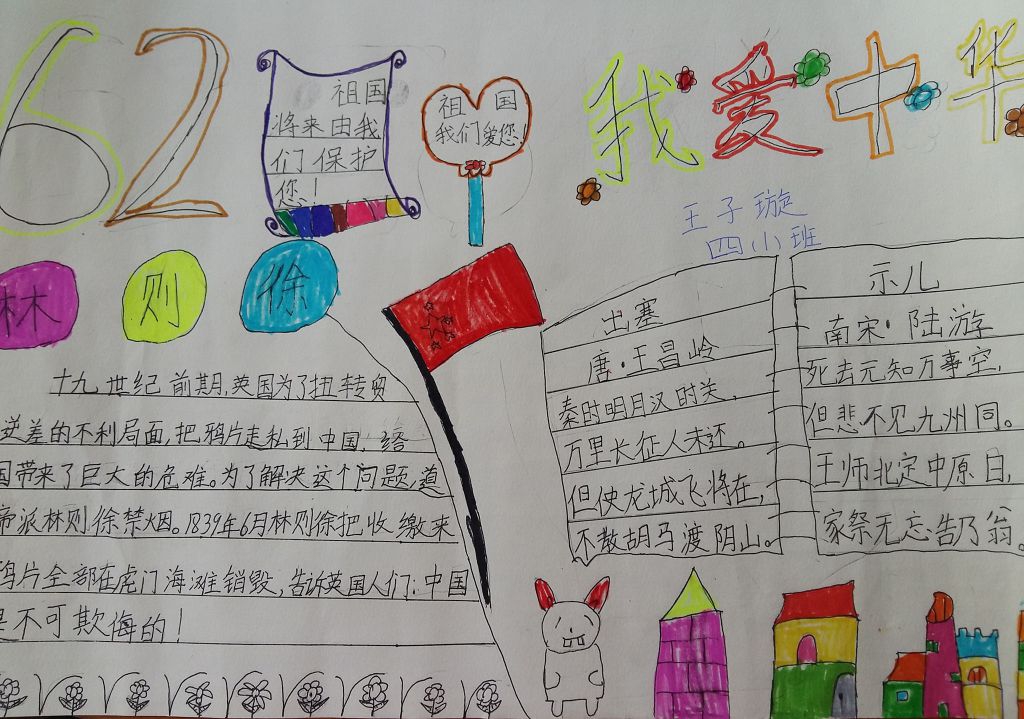 62
祖国
将来由我
们保护
您！
祖国
我们爱您！
我爱中华
王子璇
四小班
林则徐
十九世纪前期,英国为了扭转贸
逆差的不利局面,把鸦片走私到中国,给
国带来了巨大的危难。为了解决这个问题,道
帝派林则徐禁烟。1839年6月林则徐把收缴来
鸦片全部在虎门海滩销毁,告诉英国人们:中国
是不可欺侮的！
出塞
唐·王昌岭
秦时明月汉时关,
万里长征人未还。
但使龙城飞将在,
不教胡马渡阴山。
示儿
南宋·陆游
死去元知万事空,
但悲不见九州同。
王师北定中原日,
家祭无忘告乃翁。